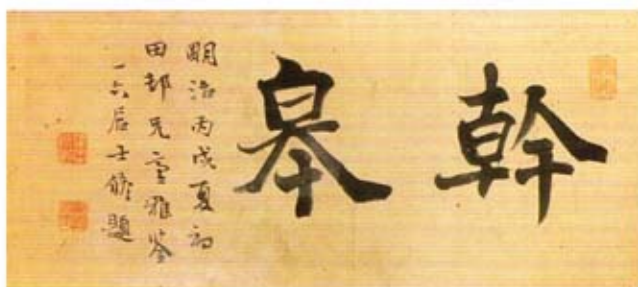 幹皋
明治丙戌夏初
田部兄臺雅鉴
一六居士修題